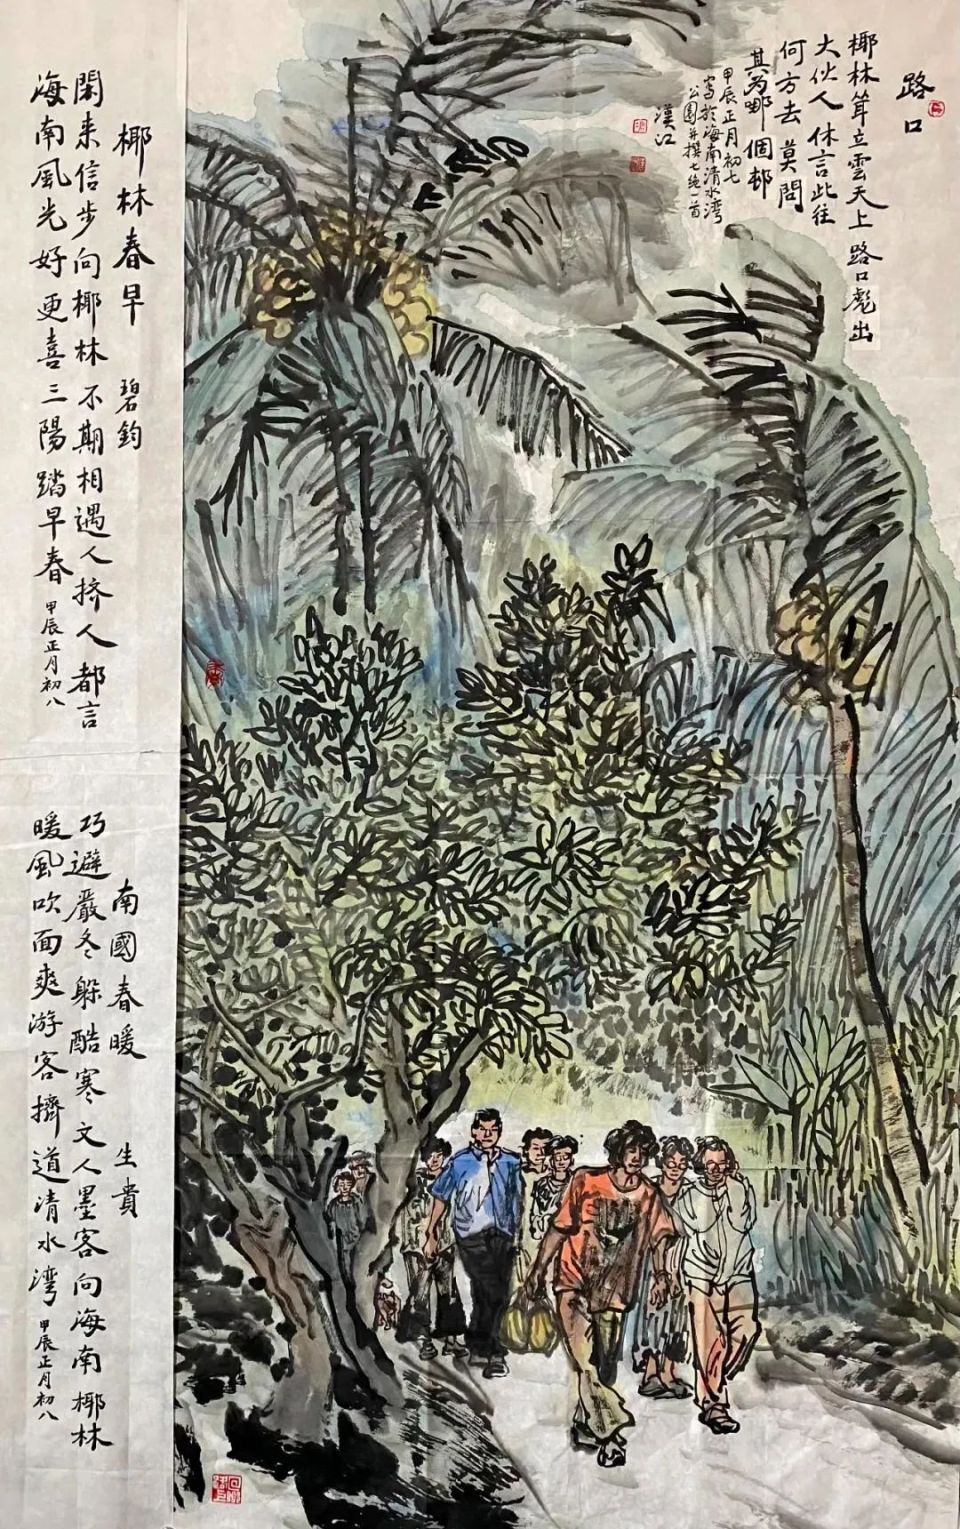 路口
椰林耸立雲天上路口彪出
大伙人休言此往
何方去莫問
其为哪個邨
甲辰正月初七
寫於海南清水湾
公園并撰七绝一首
漢江
椰林春早 碧鈞
閑来信步向椰林不期相遇人挤人都言
海南風光好更喜三陽踏早春 甲辰正月初八
南國春暖 生貴
巧避嚴冬躲酷寒文人墨客向海南椰林
暖風吹面爽游客擠道清水湾 甲辰正月初八